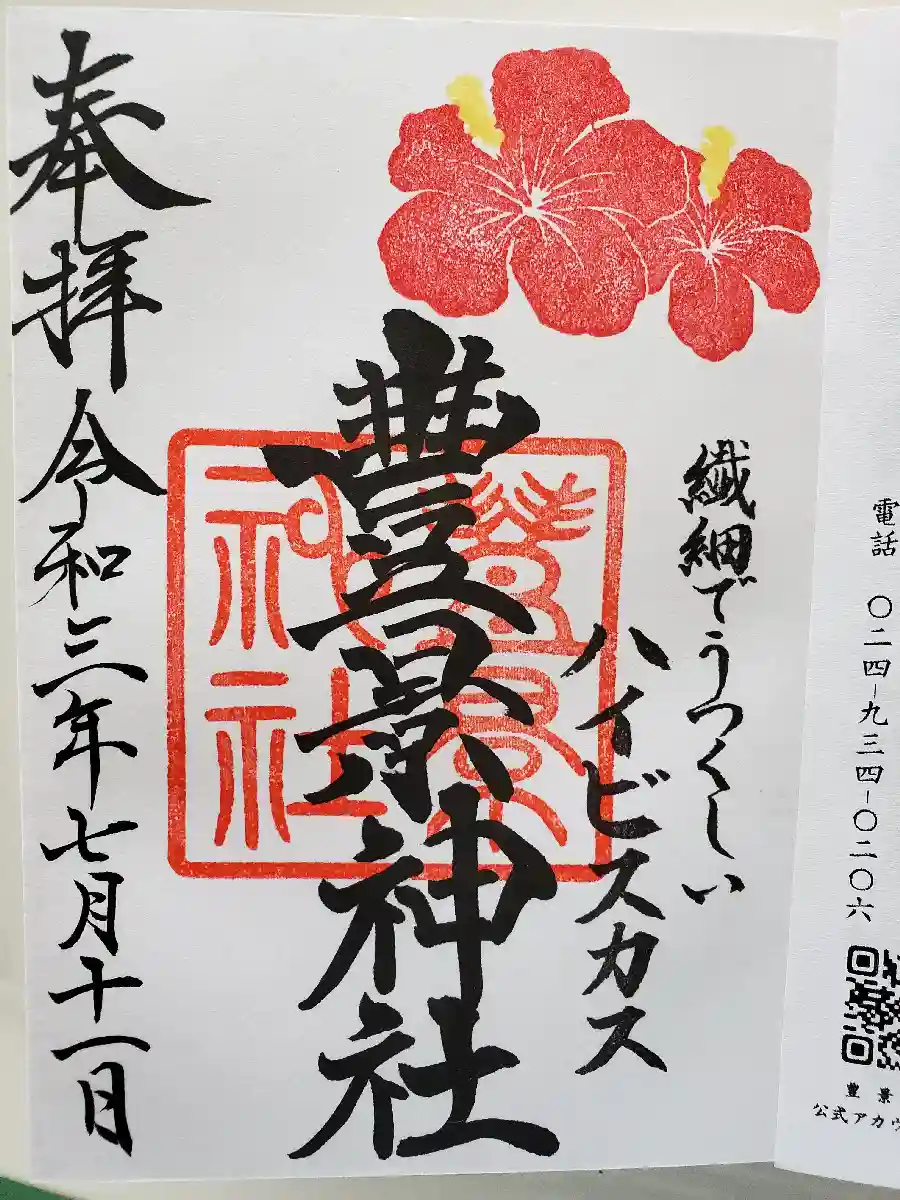 電話 〇二四-九三四-〇二〇六
豊景
公式アカウ
繊細でうつくしい
ハイビスカス
豊景神社
豊景神社
奉拝 令和三年七月十一日